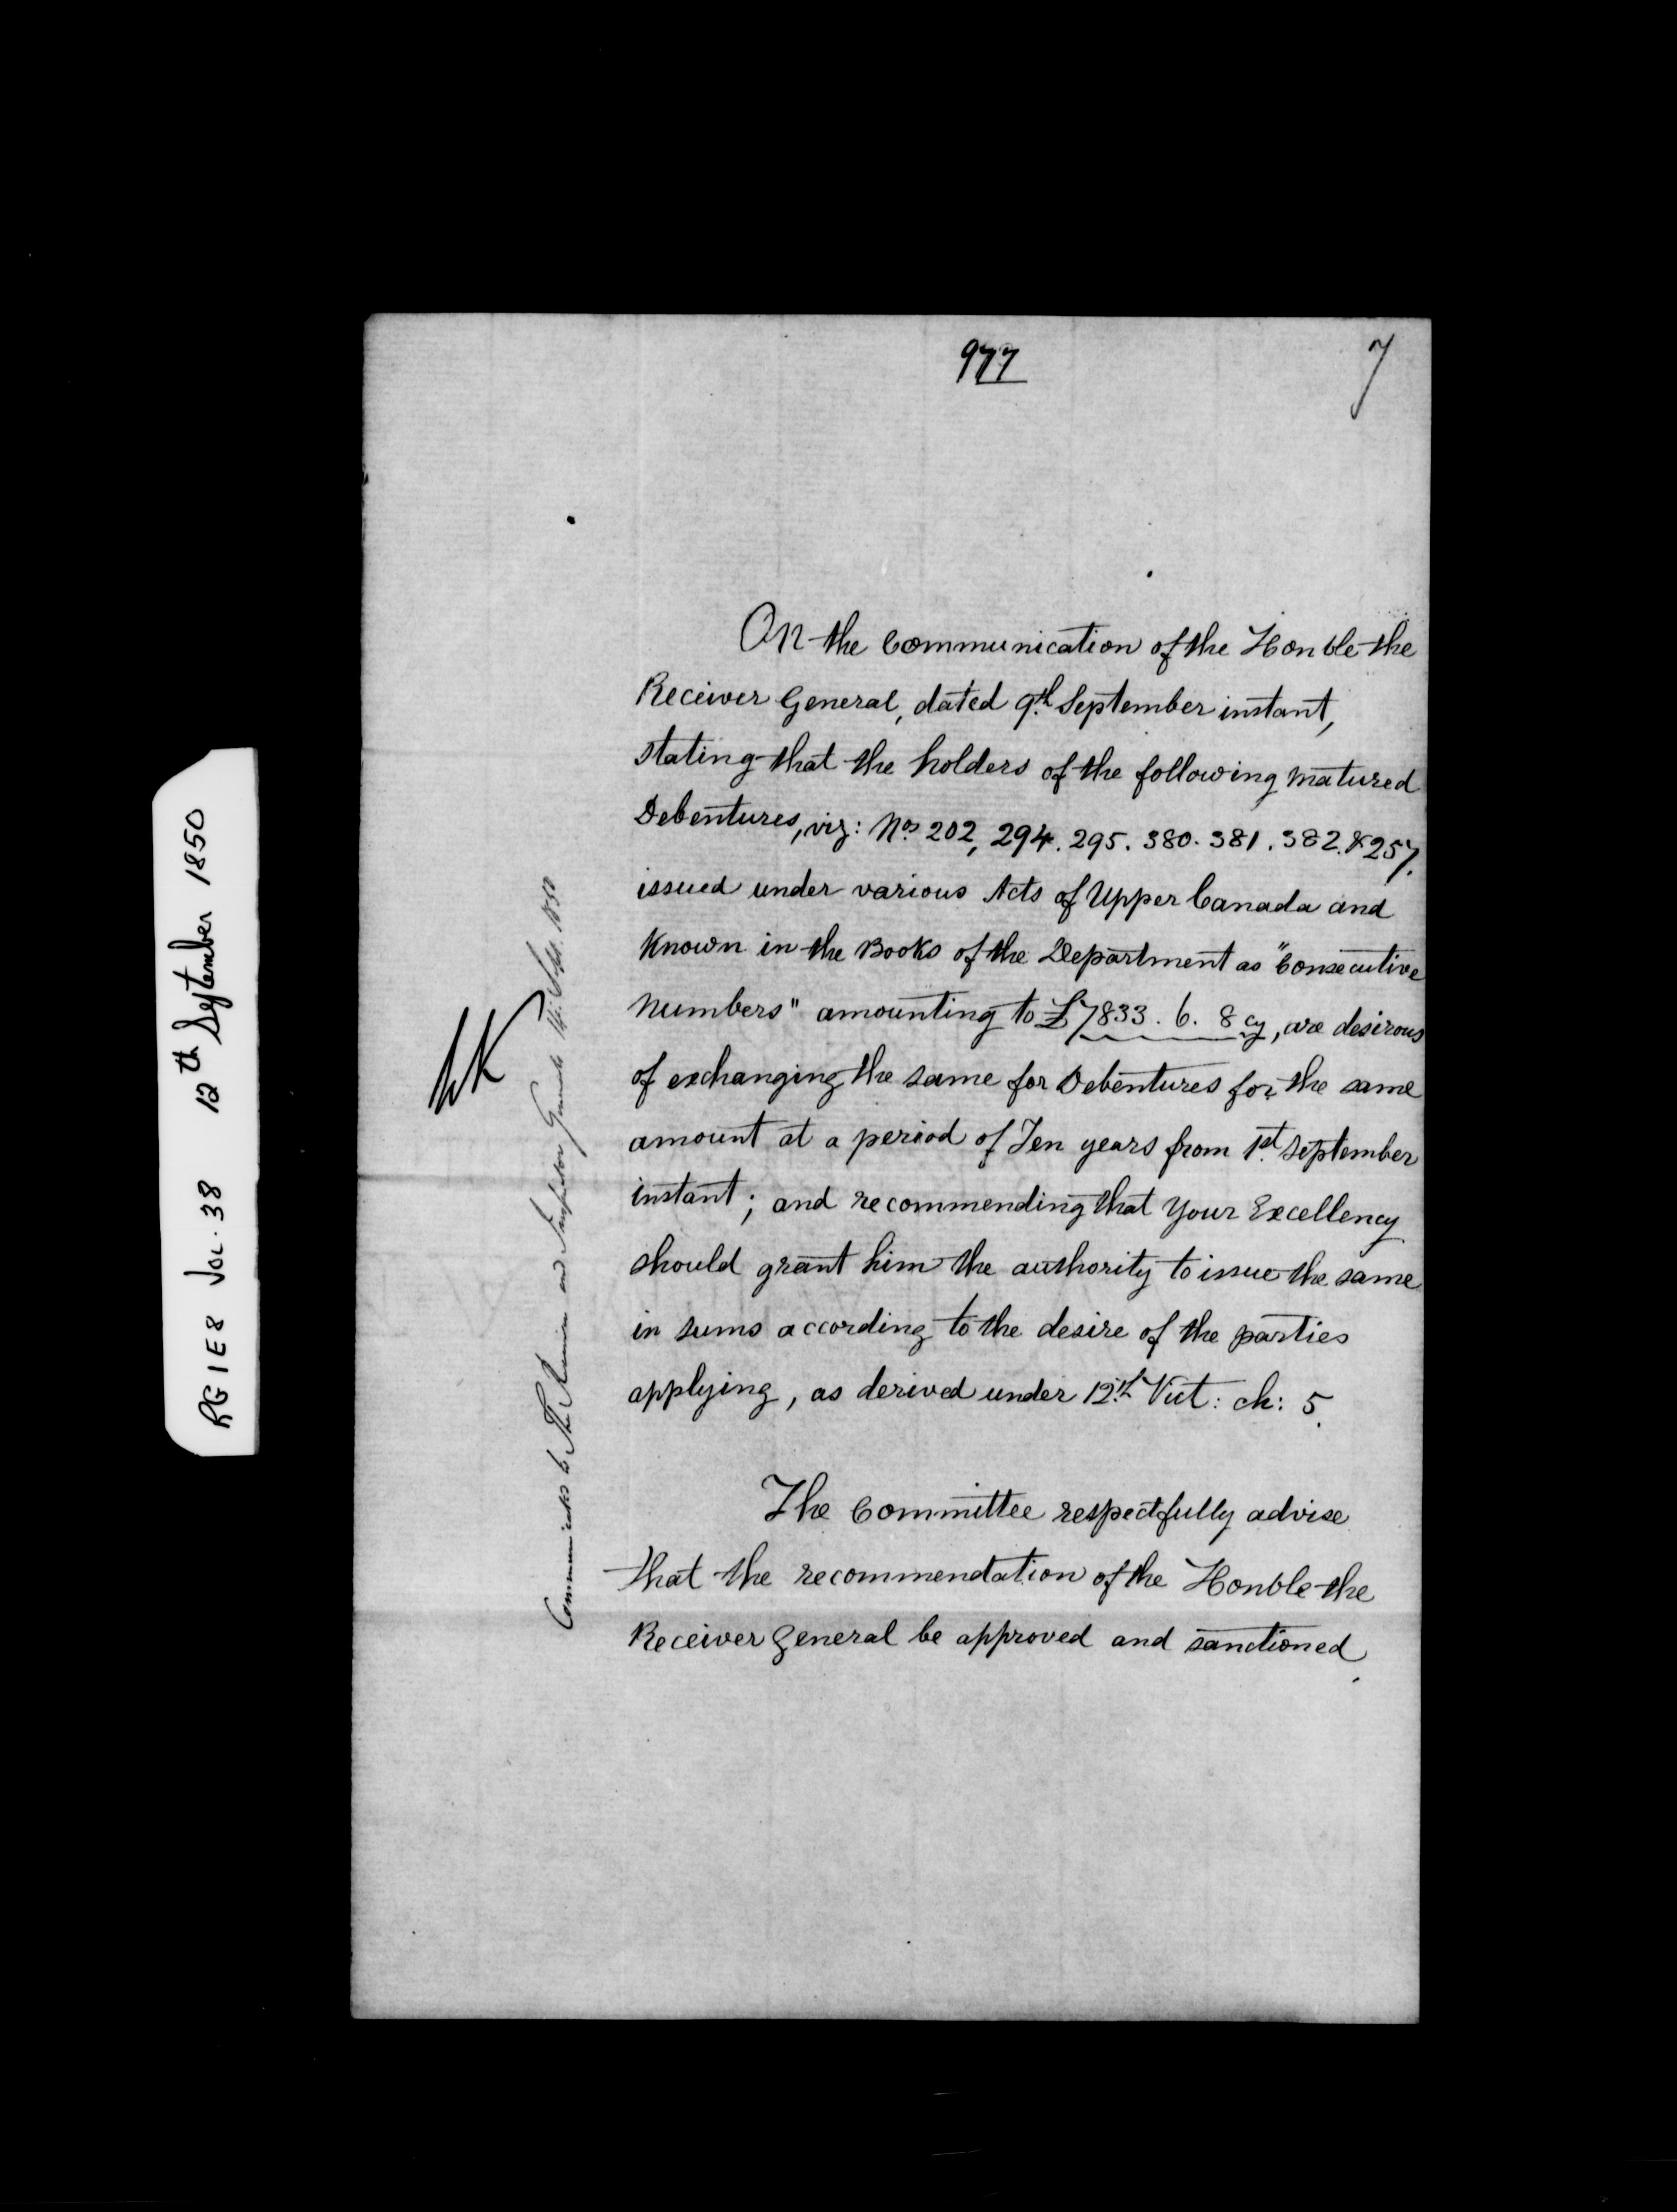 977
7
On the Communication of the Honble the
Receiver General, dated 9th September instant,
stating that the holders of the following matured
Debentures, viz: Nos 202, 294. 295. 380. 381. 382. & 257.
issued under various Acts of Upper Canada and
Known in the Books of the Department as "Consecutive
Numbers" amounting to £7833. 6. 8 cy, are desirous
of exchanging the same for Debentures for the same
amount at a period of Ten years from 1st September
instant; and recommending that Your Excellency
should grant him the authority to issue the same
in sums according to the desire of the parties
applying, as derived under 12th Vict: ch: 5.
The Committee respectfully advise
that the recommendation of the Honble the
Receiver General be approved and sanctioned.
Communicated to The Receiver and Inspector Generals Sept. 1850
RG 1 E 8 Vol. 38 12th September 1850